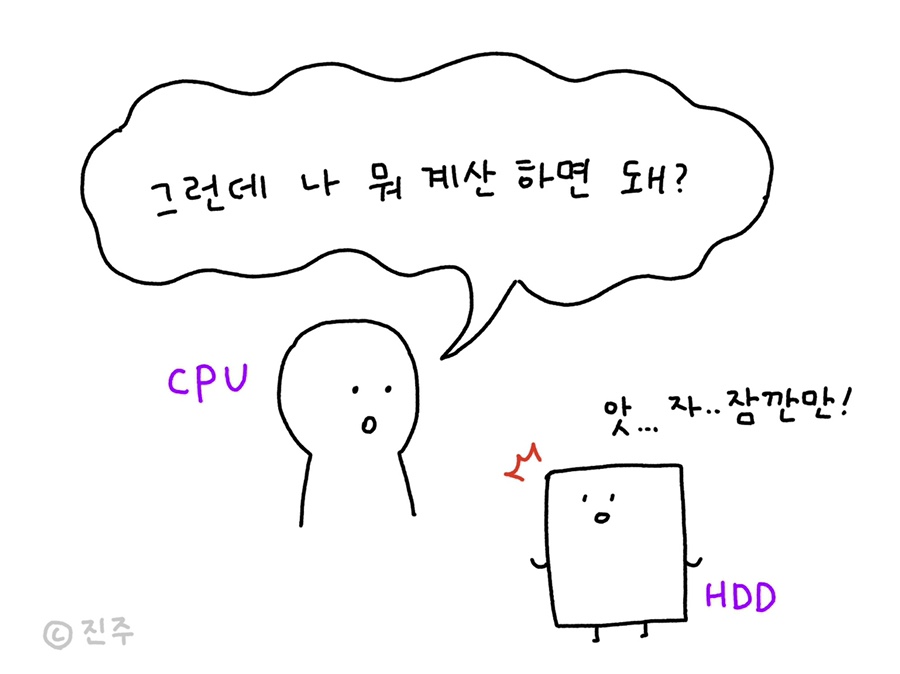 그런데 나 뭐 계산 하면 돼?
CPU
앗... 자..잠깐만!
HDD
ⓒ 진주